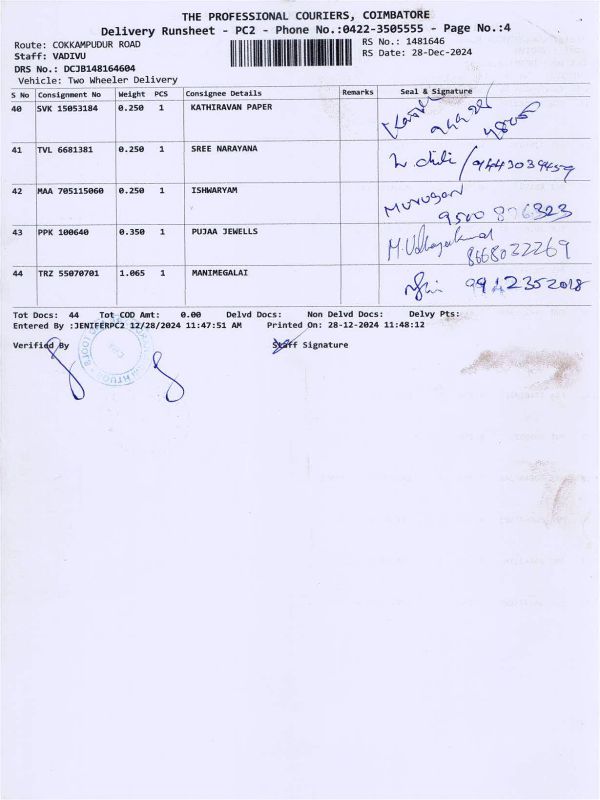 THE PROFESSIONAL COURIERS, COIMBATORE
Delivery Runsheet - PC2 - Phone No.:0422-3505555 - Page No.:4
Route: COKKAMPUDUR ROAD RS No.: 1481646
Staff: VADIVU RS Date: 28-Dec-2024
DRS No.: DCJB148164604
Vehicle: Two Wheeler Delivery
S No Consignment No Weight PCS Consignee Details Remarks Seal & Signature
40 SVK 15053184 0.250 1 KATHIRAVAN PAPER
41 TVL 6681381 0.250 1 SREE NARAYANA 9443039459
42 MAA 705115060 0.250 1 ISHWARYAM Murugan
9500 876323
43 PPK 100640 0.350 1 PUJAA JEWELLS
8668032269
44 TRZ 55070701 1.065 1 MANIMEGALAI 9942352018
Tot Docs: 44 Tot COD Amt: 0.00 Delvd Docs: Non Delvd Docs: Delvy Pts:
Entered By :JENIFERPC2 12/28/2024 11:47:51 AM Printed On: 28-12-2024 11:48:12
Verified By Staff Signature